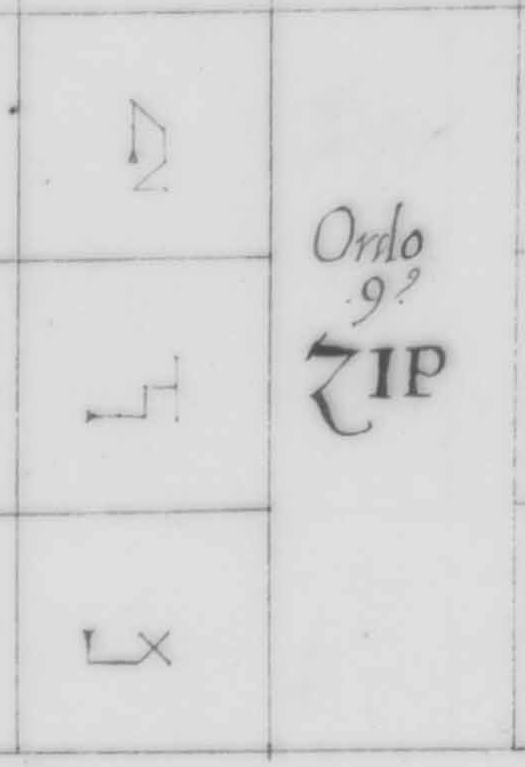 Ordo
.9?
ZIP